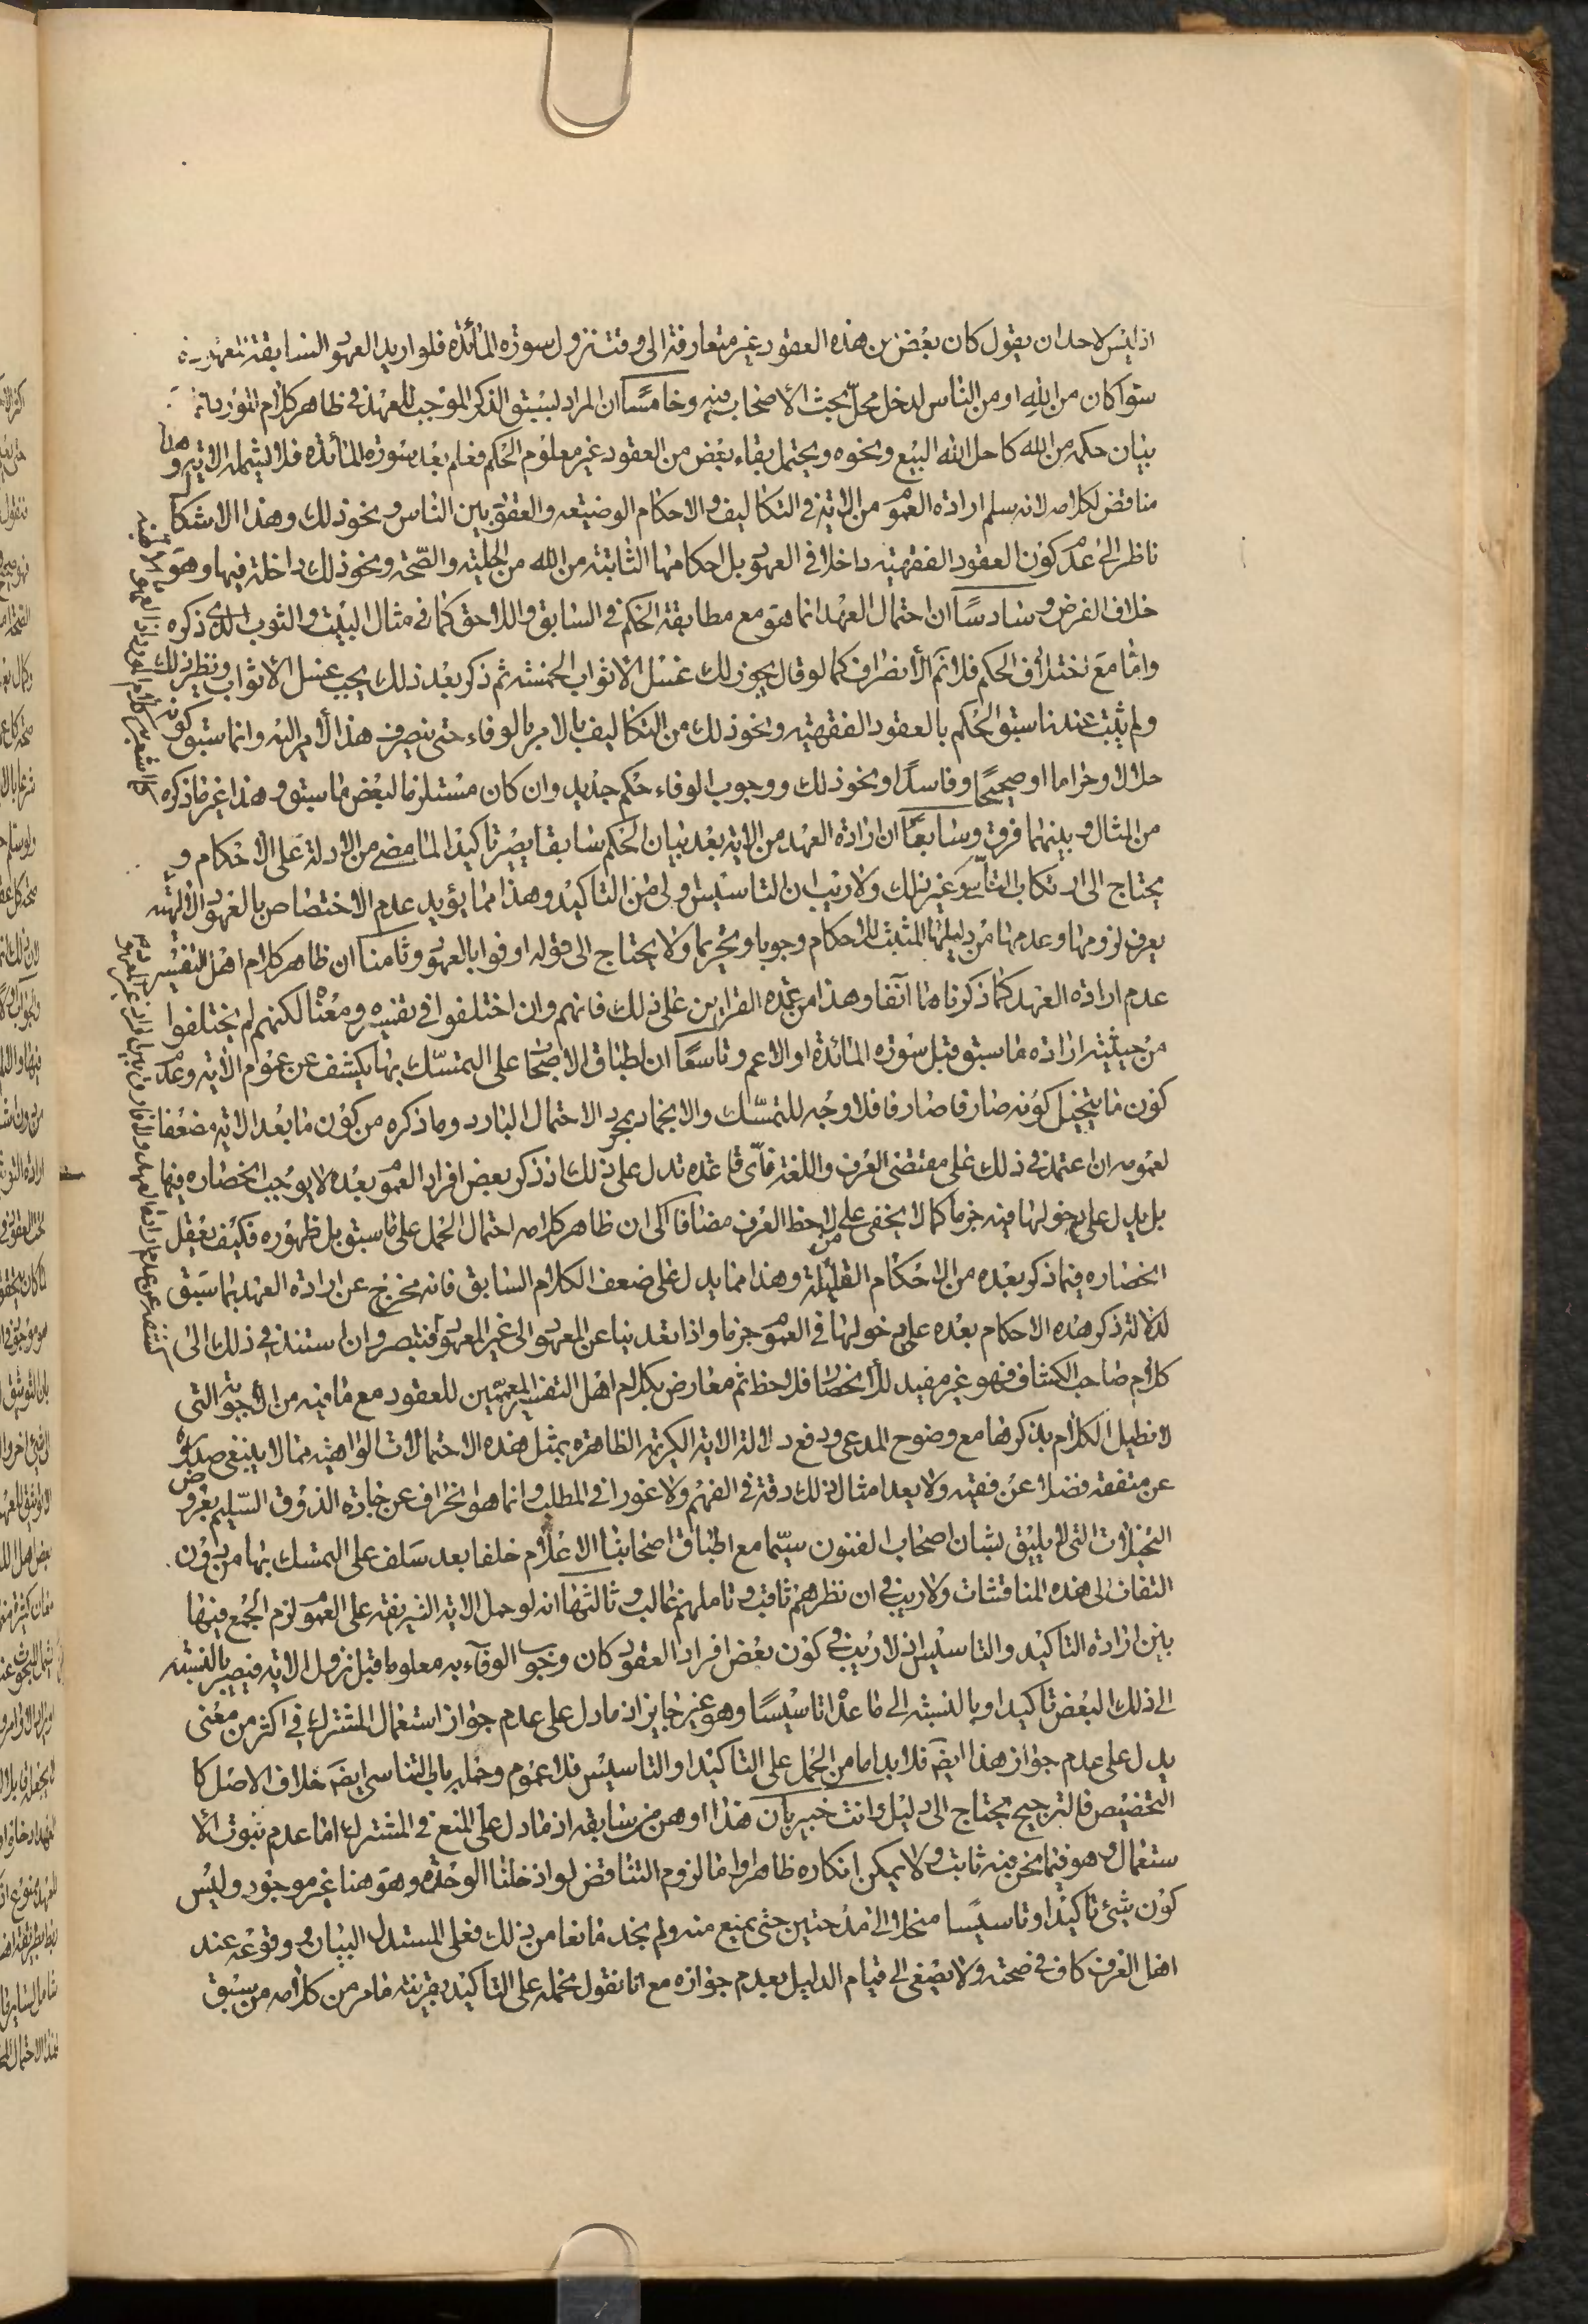 اذ ليس لاحد ان يقول كان بعض من هذه العقود غير متعارفة الى وقت نزول سورة المائدة فلو اريد العهود السابقة
سوا كان من الله او من الناس لدخل محل بحث الاصحاب فيه وخامسًا ان المراد لسبق الذكر الموجب للعهد في ظاهر كلام المورد
بيان حكمه من الله كاحل الله البيع ونحوه ويحتمل بقاء بعض من العقود غير معلوم الحكم فعلم بعد سورة المائدة فلا يشمله الاية وهذا
مناقض لكلامه لانه سلم ارادة العموم من الاية في التكاليف والاحكام الوضيعه والعقود بين الناس ونحو ذلك وهذا الاشكال
ناظر الى عدم كون العقود الفقهيه داخلا في العهود بل احكامها الثابتة من الله من الحلية والصحة ونحو ذلك داخلة فيها وهو
خلاف الفرض وسادسًا ان احتمال العهد انما هو مع مطابقة الحكم في السابق واللاحق كما في مثال البيت والثوب الذي ذكره
واما مع اختلاف الحكم فلا نم الانصراف كما لو قال يجوز لك غسل الاثواب الخمسة ثم ذكر بعد ذلك يجب غسل الاثواب ونظير ذلك
ولم يثبت عندنا سبق الحكم بالعقود الفقهيه ونحو ذلك من التكاليف بالامر بالوفاء حتى ينصرف هذا الامر اليه وانما سبق كونه
حلالا وحراما او صحيحًا وفاسدًا ونحو ذلك ووجوب الوفاء حكم جديد وان كان مستلزما لبعض ما سبق وهذا غير ما ذكره
من المثال وبينهما فرق وسابعًا ان ارادة العهد من الاية بعد بيان الحكم سابقا يصير تاكيدا لما مضى من الادلة على الاحكام و
يحتاج الى ارتكاب التاسي وغير ذلك ولا ريب ان التاسيس اولى من التاكيد وهذا مما يؤيد عدم الاختصاص بالعهود الالهيه
يعرف لزومها وعدمها من دليلها المثبت للاحكام وجوبا وتحريما ولا يحتاج الى قوله اوفوا بالعهود وثامنا ان ظاهر كلام اهل التفسير
عدم ارادة العهد كما ذكرناها آنفا وهذا من عمدة القراين على ذلك فانهم وان اختلفوا في تفسيره ومعناه لكنهم لم يختلفوا
من حيثية ارادة ما سبق قبل سورة المائدة او الاعم وتاسعًا ان اطباق الاصحاب على التمسك بها يكشف عن عموم الاية وعدم
كون ما يتخيل كونه صارفا صارفا فلا وجه للتمسك والايجاد بمجرد الاحتمال البارد وما ذكره من كون ما بعد الاية مضعفا
لعمومه ان اعتمد في ذلك على مقتضى العرف واللغة فاى قاعده تدل على ذلك اذ ذكر بعض افراد العموم بعده لا يوجب انحصاره فيها
بل يدل على دخولها فيه جزما كما لا يخفى على من لاحظ العرف مضافا الى ان ظاهر كلامه احتمال الحمل على ما سبق بل ظهوره فكيف يعقل
انحصاره فيما ذكر بعده من الاحكام القليلة وهذا مما يدل على ضعف الكلام السابق فانه مخرج عن ارادة العهد بما سبق
لدلالة ذكر هذه الاحكام بعده على دخولها في العموم جزما واذا تعدينا عن المعهود الى غير المعهود فتبصر وان استند في ذلك الى
كلام صاحب الكشاف فهو غير مفيد للانحصار فلاحظ ثم معارض بكلام اهل التفسير المعممين للعقود مع ما فيه من الاجوبة التى
لا نطيل الكلام بذكرها مع وضوح المدعى ودفع دلالة الاية الكريمة الظاهرة بمثل هذه الاحتمالات الواهية مما لا ينبغى صدوره
عن متفقه فضلا عن فقيه ولا يعد امثال ذلك دقة في الفهم ولا غورا في المطلب وانما هو انحراف عن جادة الذوق السليم بعروض
التخيلات التى لا يليق بشان اصحاب الفنون سيّما مع اطباق اصحابنا الاعلام خلفا بعد سلف على التمسك بها من دون
التفات الى هذه المناقشات ولا ريب في ان نظرهم ثاقب وتاملهم غالب وثالثها انه لو حمل الاية الشريفة على العموم لزم الجمع فيها
بين ارادة التاكيد والتاسيس اذ لا ريب في كون بعض افراد العقود كان وجوب الوفآء به معلوما قبل نزول الاية فيصير بالنسبة
الى ذلك البعض تاكيدا وبالنسبة الى ما عداه تاسيسًا وهو غير جايز اذ ما دل على عدم جواز استعمال المشترك في اكثر من معنى
يدل على عدم جواز هذا ايضَ فلا بد اما من الحمل على التاكيد او التاسيس فلا عموم وحمله على التاسى ايضَ خلاف الاصل كا
التخصيص فالترجيح يحتاج الى دليل وانت خبير بان هذا اوهن من سابقه اذ ما دل على المنع في المشترك اما عدم ثبوت الا
ستعمال وهو فيما نحن فيه ثابت ولا يمكن انكاره ظاهرا واما لزوم التناقض لو ادخلنا الوحدة وهو هنا غير موجود وليس
كون شئ تاكيدا وتاسيسًا منحلا الى مدحتين حتى يمنع منه ولم نجد مانعا من ذلك فعلى المستدل البيان ووقوعه عند
اهل العرف كاف في صحته ولا يصغى الى قيام الدليل بعدم جوازه مع انا نقول نحمله على التاكيد بقرينة ما مر من كلامه من سبق